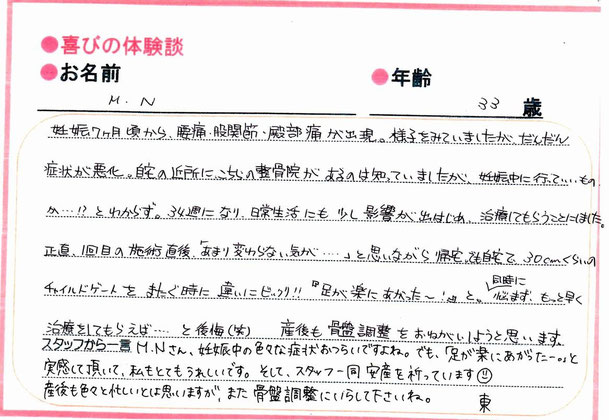 ●喜びの体験談
●お名前 ●年齢
M.N 33 歳
妊娠7ヶ月頃から、腰痛・股関節・殿部痛が出現。様子をみていましたが、だんだん
症状が悪化。自宅の近所にこちらの整骨院があるのは知っていましたが、妊娠中に行っていいもの
か…!?とわからず。34週になり、日常生活にも少し影響が出はじめ、治療してもらうことにしました。
正直、1回目の施術直後、「あまり変わらない気が……」と思いながら帰宅。でも自宅で、30cmくらいの
チャイルドゲートをまたぐ時に違いにビックリ!!『足が楽にあがった〜!』と。同時に悩まず、もっと早く
治療をしてもらえば…と後悔(笑) 産後も骨盤調整をおねがいしようと思います。
スタッフから一言 M.Nさん、妊娠中の色々な症状おつらいですよね。でも、「足が楽にあがたー。」と
実感して頂いて、私もとてもうれしいです。そして、スタッフ一同安産を祈っています☺
産後も色々と忙しいとは思いますが、また骨盤調整にいらして下さいね。 東